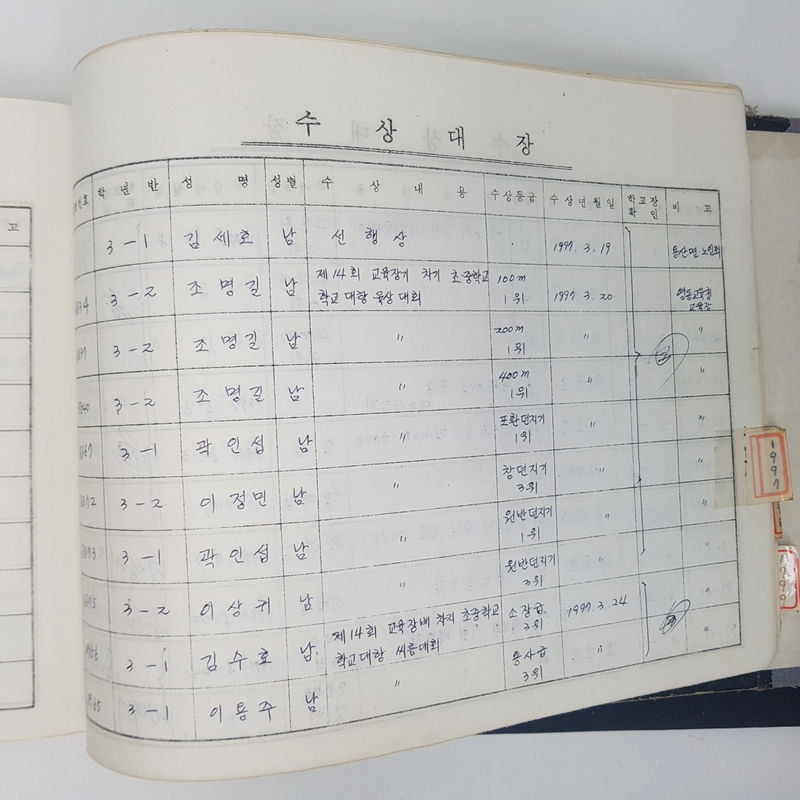 수 상 대 장
번호 학 년 반 성 명 성별 수 상 내 용 수상등급 수 상 년 월 일 학교장 확 인 비 고
3-1 김세호 남 선행상 1997. 3. 19 용산면 노인회
3-2 조명길 남 제14회 교육장기 차기 초중학교 100m 1997. 3. 20 영동교육청
학교 대항 육상 대회 1위 교육장
3-2 조명길 남 〃 200m 〃 〃
1위
3-2 조명길 남 〃 400m 〃 〃
1위
3-1 곽인섭 남 〃 포환던지기 〃 〃
1위
3-2 이정민 남 〃 창던지기 〃 〃
3위
3-1 곽인섭 남 〃 원반던지기 〃 〃
1위
3-2 이상귀 남 〃 원반던지기 〃 〃
3위
3-1 김수호 남 제14회 교육장배 차지 초중학교 소장급 1997. 3. 24 〃
학교대항 씨름대회 3위
3-1 이용주 남 〃 용사급 〃 〃
3위
고
1997
1999